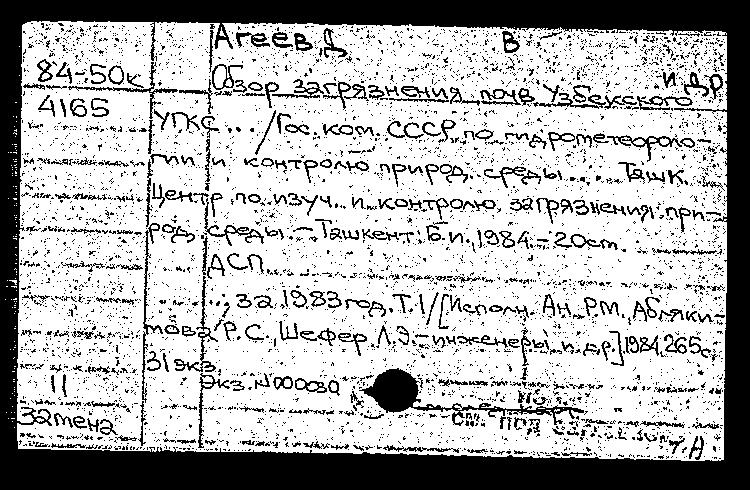 Агеев, Д В
и др
84-50к Обзор загрязнения почв Узбекского
4165 УГКС... /Гос. ком. СССР по гидрометеороло-
гии и контролю природ. среды... Ташк.
Центр по изуч. и контролю загрязнения при-
род. среды. - Ташкент: Б.и., 1984 - 20 cm.
ДСП
...; за 1983 год. Т.1/[Исполн. Ан. Р.М., Абляки-
това Р.С., Шефер Л.Э. - инженеры и др.] 1984. 265с.
31 экз.
Экз. №000030
11
замена
см. под
т. А